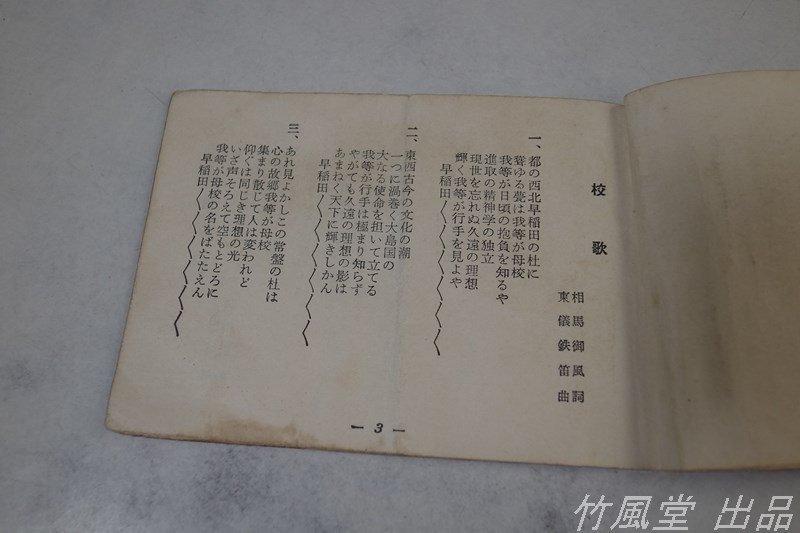 校歌
相馬御風詞
東儀鉄笛曲
一、都の西北早稲田の杜に
聳ゆる甍は我等が母校
我等が日頃の抱負を知るや
進取の精神学の独立
現世を忘れぬ久遠の理想
輝く我等が行手を見よや
早稲田〳〵〳〵〳〵
二、東西古今の文化の潮
一つに渦巻く大島国の
大なる使命を担いて立てる
我等が行手は極まり知らず
やがても久遠の理想の影は
あまねく天下に輝きしかん
早稲田〳〵〳〵〳〵
三、あれ見よかしこの常盤の杜は
心の故郷我等が母校
集まり散じて人は変われど
仰ぐは同じき理想の光
いざ声そろえて空もとどろに
我等が母校の名をばたたえん
早稲田〳〵〳〵〳〵
— 3 —
竹風堂 出品